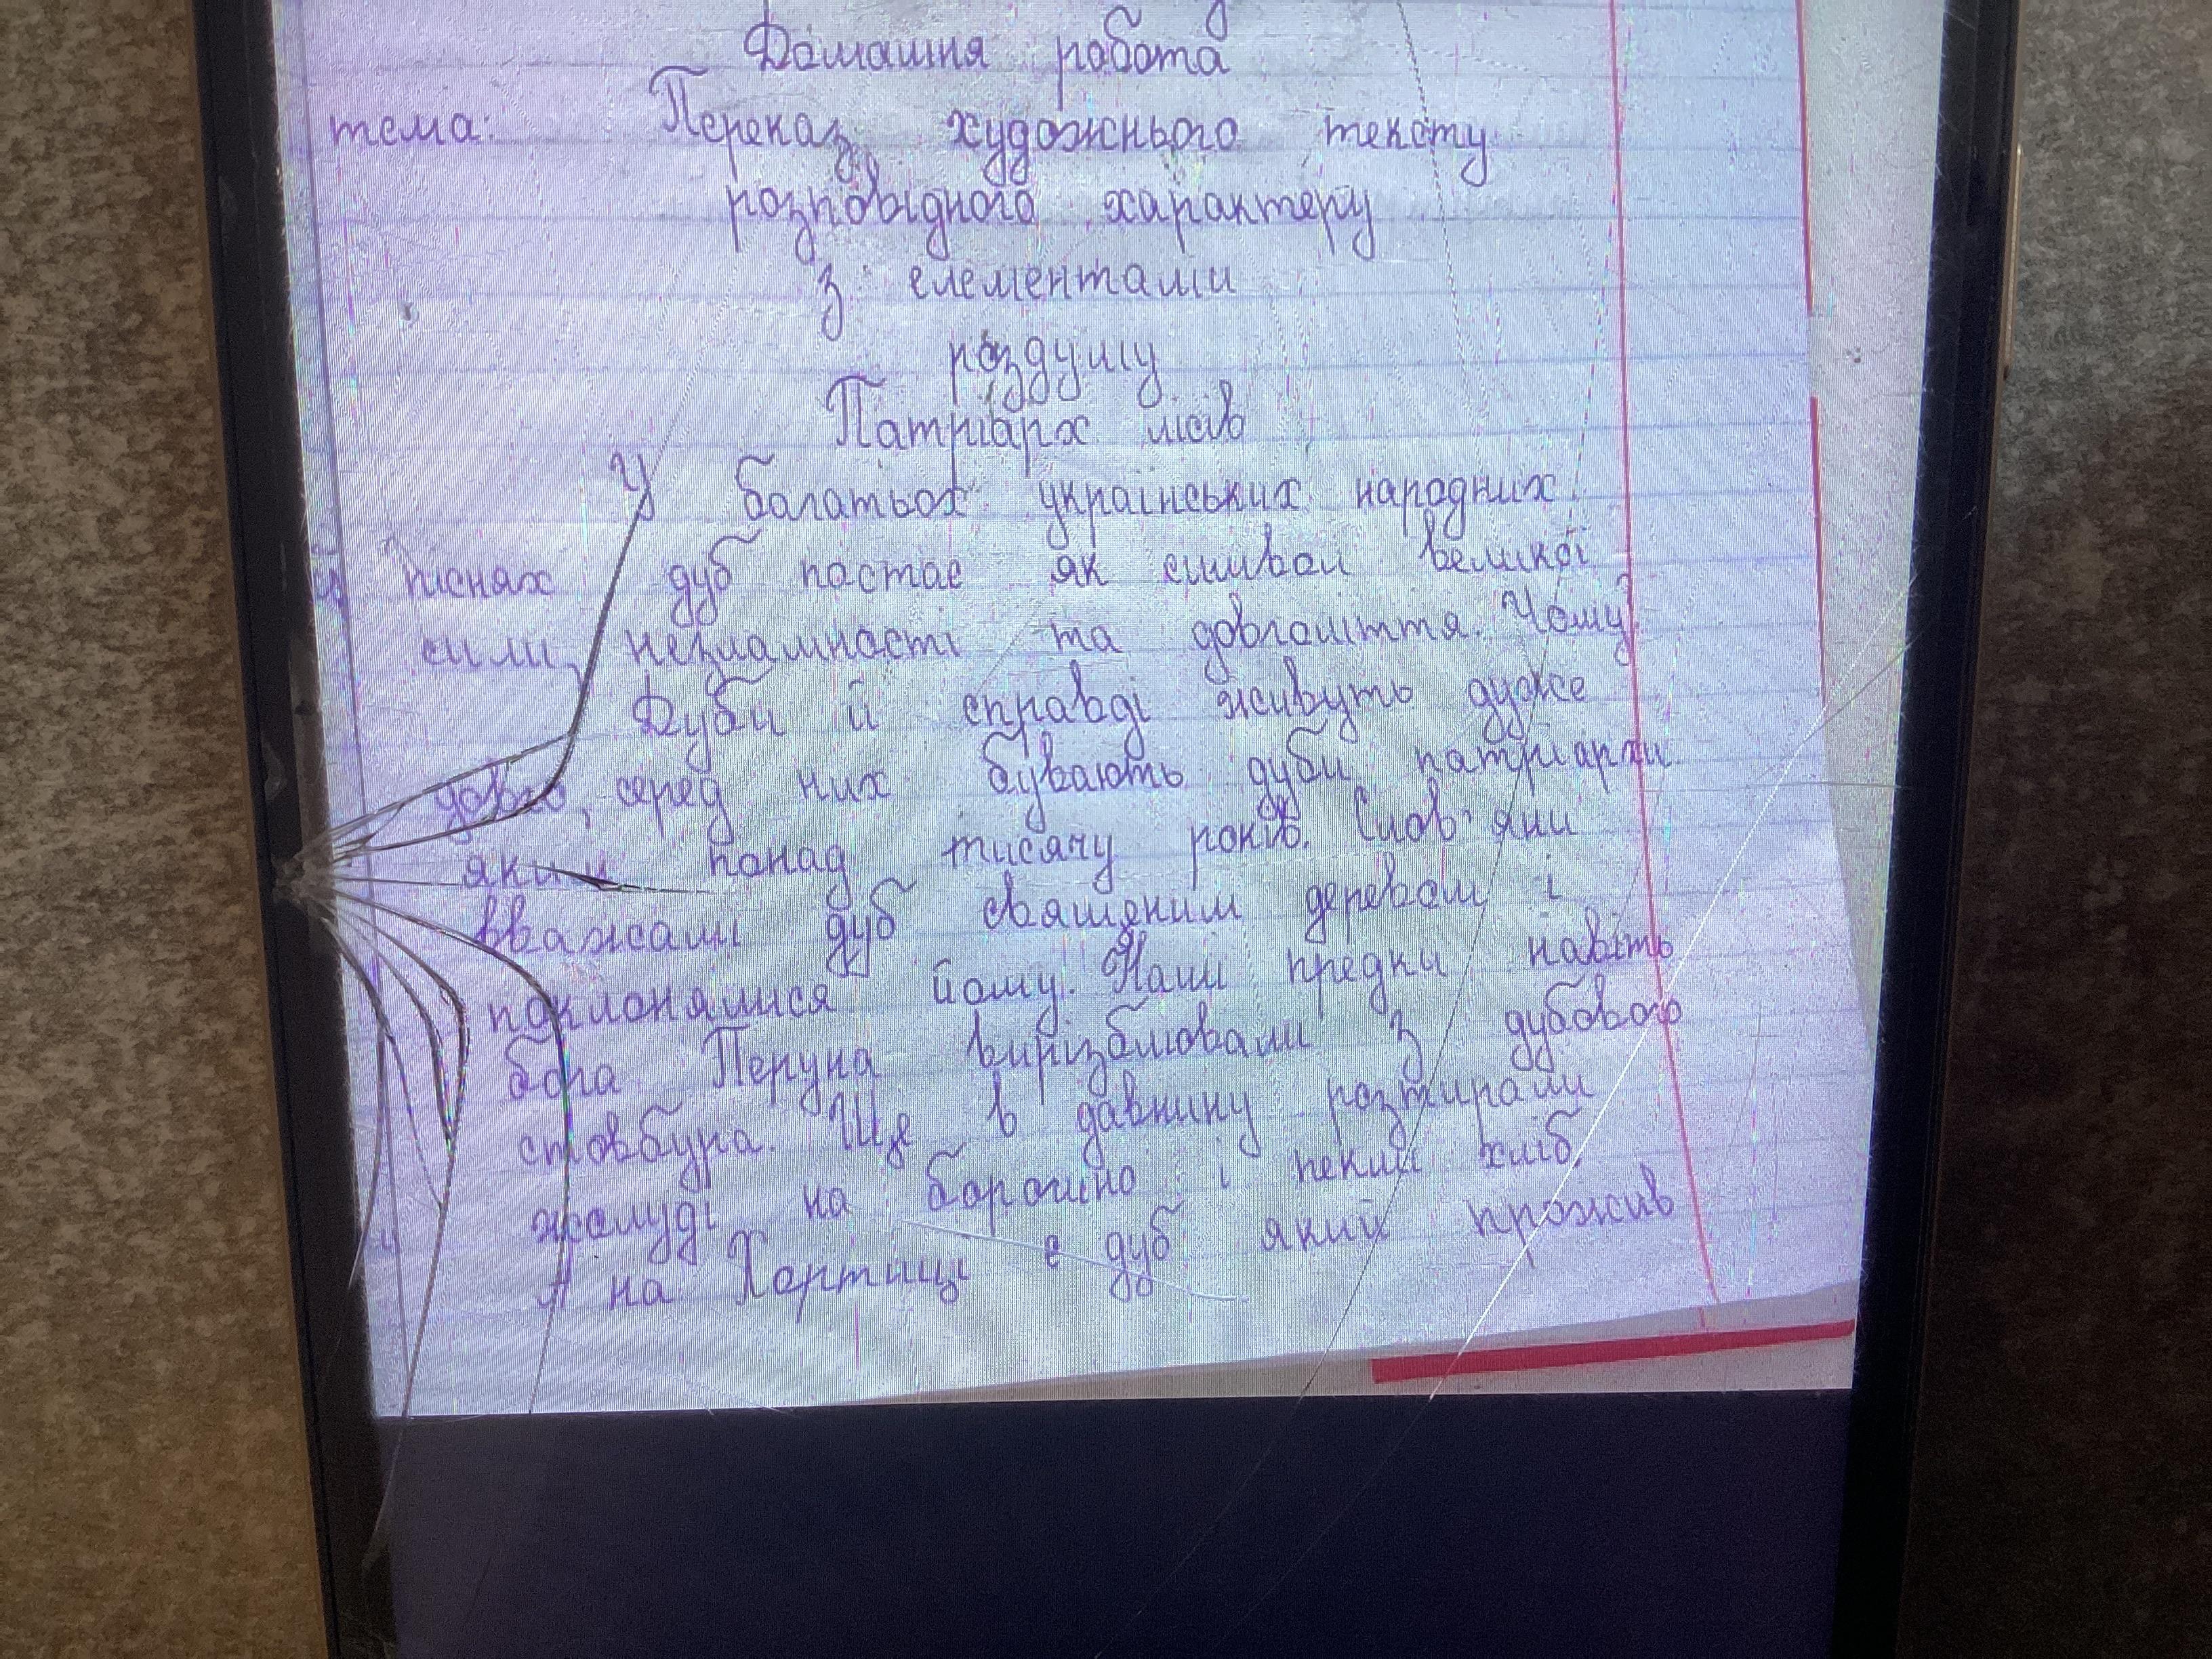 Домашня робота
тема: Переказ художнього тексту
розповідного характеру
з елементами
роздуму
Патріарх лісів
У багатьох українських народних
піснях дуб постає як символ великої
сили, незламності та довголіття. Чому
Дуби й справді живуть дуже
довго, серед них бувають дуби патріархи
яким понад тисячу років. Слов'яни
вважали дуб священим деревом і
поклонялися йому. Наші предки навіть
бога Перуна вирізблювали з дубового
стовбура. Ще в давнину розтирали
жолуді на борошно і пекли хліб.
А на Хортиці є дуб який прожив